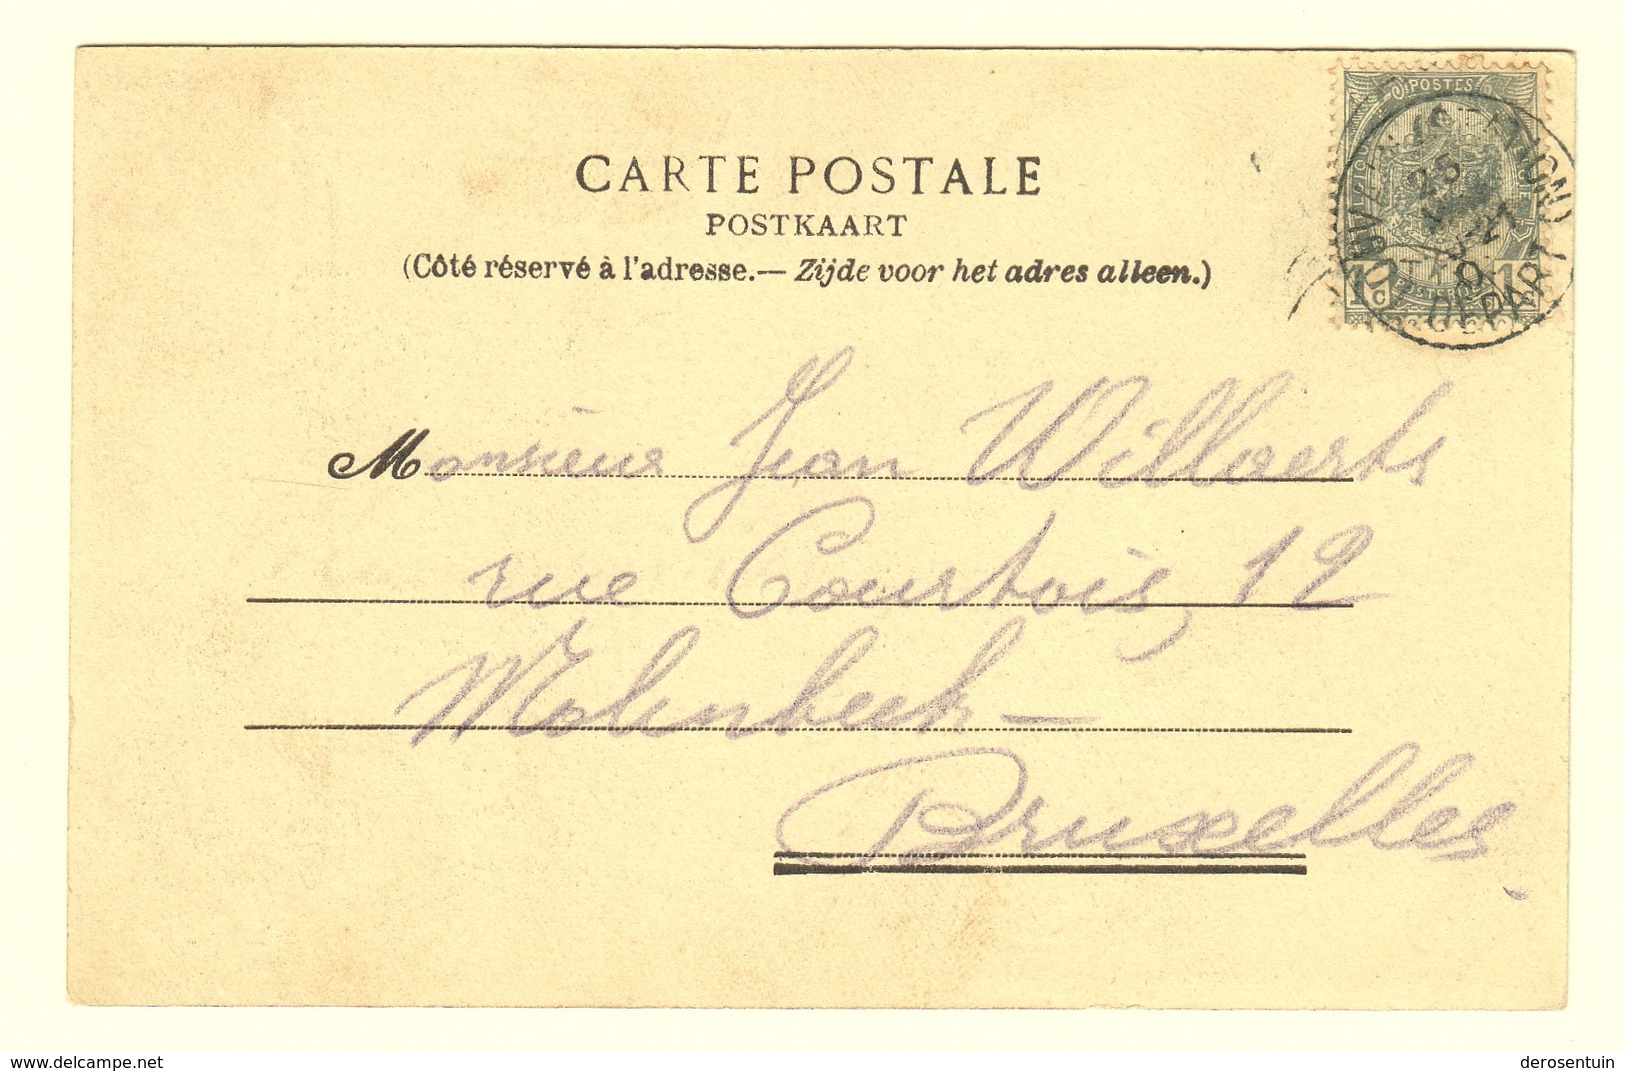 POSTES
CARTE POSTALE
POSTKAART
(Côté réservé à l'adresse.— Zijde voor het adres alleen.)
25
1 C 1
DEPART
Monsieur Jean Willaerts
rue Courtois, 12
Molenbeek —
Bruxelles
www.delcampe.net
derosentuin